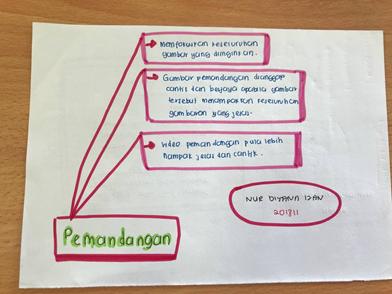 Memfokuskan keseluruhan
gambar yang diinginkan.
Gambar pemandangan dianggap
cantik dan berjaya apabila gambar
tersebut menampakkan keseluruhan
gambaran yang jelas.
Video pemandangan pula lebih
nampak jelas dan cantik.
NUR DIYANA IZAN
201811
Pemandangan